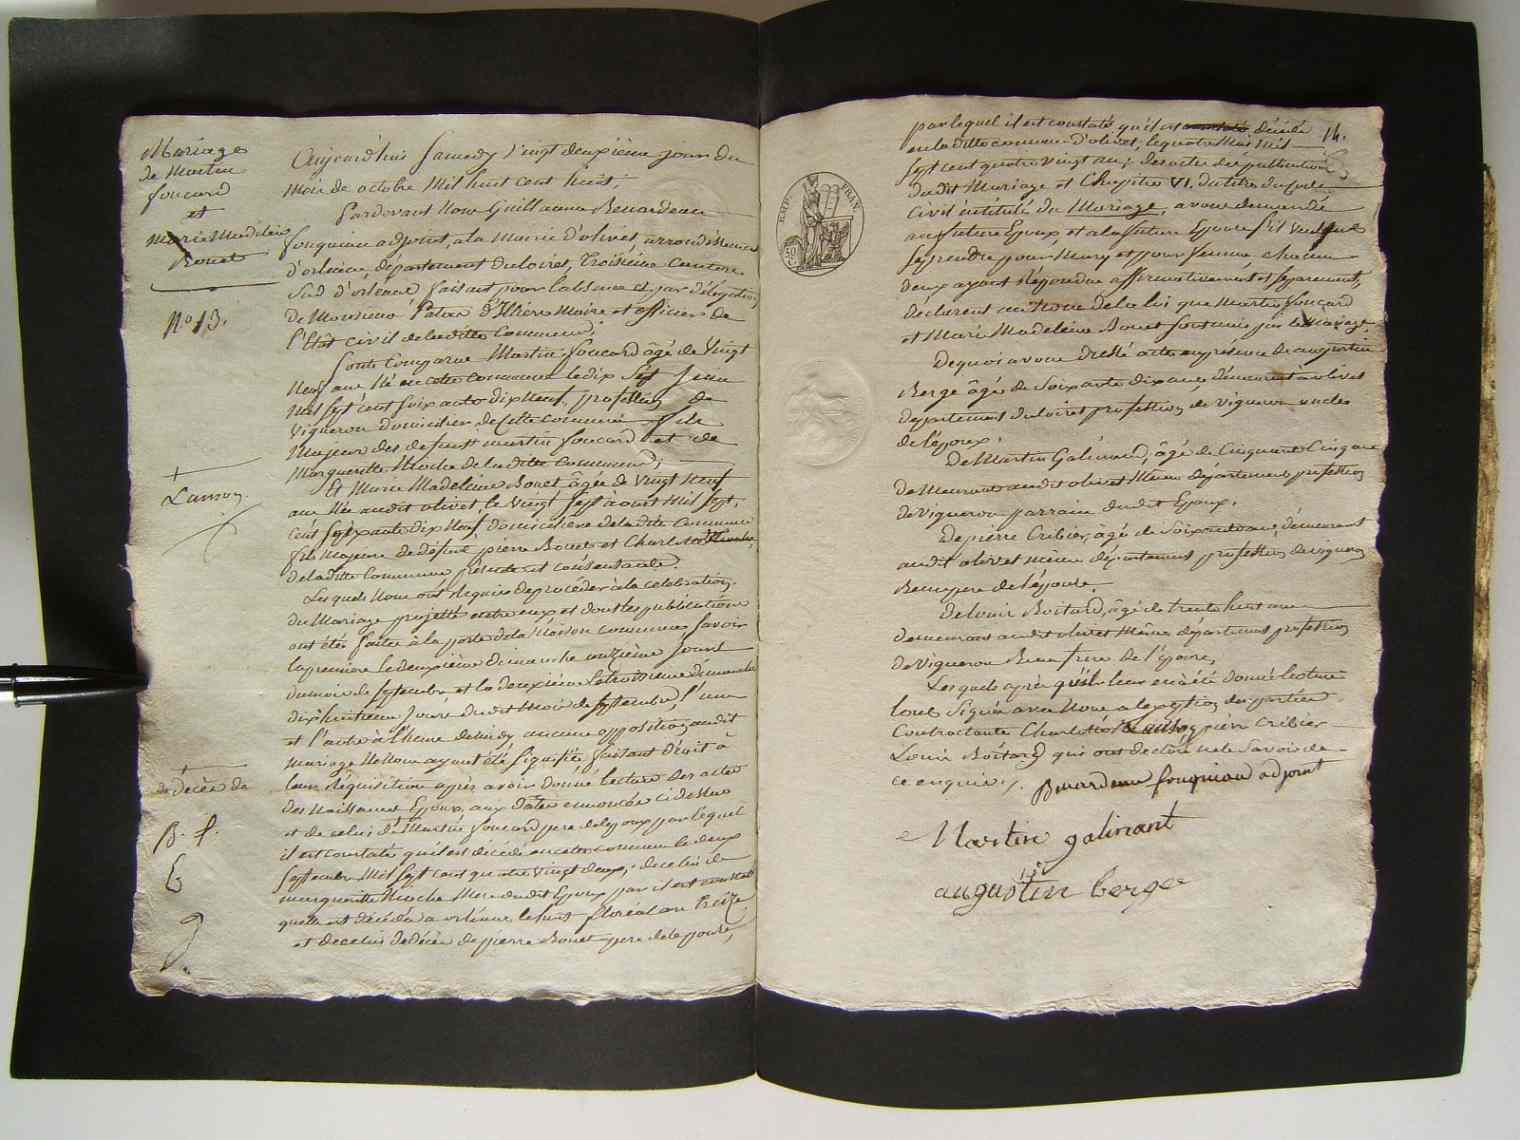 Mariage
de Martin
foucard
et
Marie Madeleine
Bouet
No 13.
Aujourd'huis samedy vingt deuxième jour du
mois de octobre mil huit cent huit,
Pardevant Nous Guillaume Benardeau
fouquiau adjoint, a la Mairie d'olivet, arrondissement
d'orléans, département du loiret, Troisième canton
Sud d'orléans faisant pour l'absence et par délégation
de Monsieur Maire et officier de
l'état civil de la ditte commune;
Sont Comparue Martin foucard âgé de vingt
Neuf ans Né en cette commune le dix sept
Mil sept cent soixante dix Neuf, profession de
vigneron domicilier de cette commune fils
Majeur des defunt martin foucard et de
Marguerite Mioche de la ditte commune;
Et Marie Madeleine Bouet âgée de vingt neuf
ans Née audit olivet, le vingt sept aoust mil sept
cent soixante dix Neuf domiciliere de la dite commune
fille Majeure de défunt pierre Bouet et Charlotte
de la ditte commune présente et consentante.
+
Lanson
Les quels Nous ont requis de procéder à la celebration
du Mariage projetté entre eux et dont les publications
ont étés faites à la porte de la Maison commune, savoir
la première le deuxième dimanche onzième jours
du mois de septembre et la deuxième le troisième dimanche
dix huitieme jours dudit mois de septembre, l'une
et l'autre à l'heure de midy aucune opposition audit
mariage Ne Nous ayant été signifiée faisant droit à
leur réquisition après avoir donné lecture des actes
des Naissances Epoux, aux dates enoncées cidessus
et de celui de Martin foucard pere de l'époux par lequel
il est constaté qu'il est décédé en cette commune le deux
septembre Mil sept cens quatre vingt deux, de celui de
marguerite Mioche Mere dudit Epoux par il est constaté
quelle est décédée a orléans le huit floréal an treize
et de celui de décès de pierre Bouet pere de l'épouse,
+
de décès de
B. f.
par lequel il est constaté qu'il est décédé 14.
en la ditte commune d'olivet, le quatre Mai Mil
sept cent quatre vingt un; des actes des publications
dudit Mariage et Chapitre VI. du titre du code
Civil intitulés du Mariage, avons demandé
au future Epoux, et a la future Epouse s'il veulent
se prendre pour Mary et pour femme, chacun
deux ayant répondue affirmativement et séparement,
déclarons au Nom de la loi, que Martin foucard
et Marie Madeleine Bouet sont unis par le Mariage.
De quoi avons dressé acte en présence de augustin
Berge âgé de soixante dix ans, démeurant à olivet
département du loiret profession de vigneron oncles
de l'époux.
De Martin Galinand, âgé de Cinquante Cinq ans
demeurant audit olivet Même département profession
de vigneron parrain dudit Epoux.
De pierre Cribier, âgé de soixante ans, démeurant
audit olivet même département profession de vigneron
Beau pere de l'épouse.
De louis Boitard, âgé de trente huit ans
demeurant audit olivet Même département profession
de vigneron Beau frere de l'épouse,
Les quels après qu'il leur en a été donné lecture
l'ont signé avec Nous a l'exception des parties
Contractante Charlotte pierre Cribier
Louis Boitard qui ont declaré ne le savoir de
ce enquis.
Benardeau fouquiau adjoint
Martin galinant
augustin berge
EMP. FRAN.